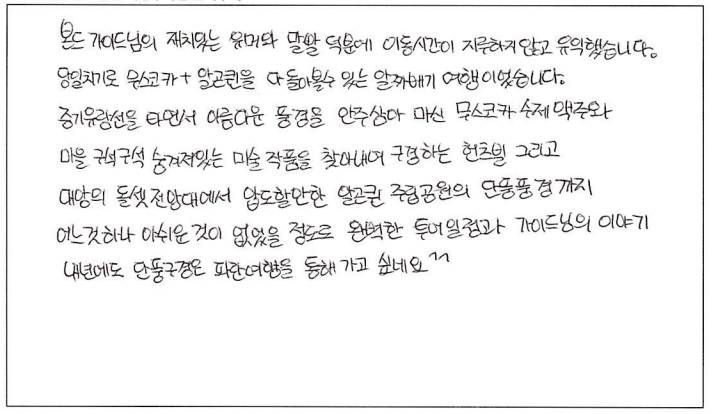 본드 가이드님의 재치있는 유머와 말빨 덕분에 이동시간이 지루하지 않고 유익했습니다.
당일치기로 무스코카+ 알고퀸을 다 돌아볼수 있는 알짜배기 여행이었습니다.
증기유람선을 타면서 아름다운 풍경을 안주삼아 마신 무스코카 수제 맥주와
마을 구석구석 숨겨져있는 미술 작품을 찾아내며 구경하는 헌츠빌 그리고
대망의 돌셋전망대에서 압도할만한 알곤퀸 주립공원의 단풍풍경까지
어느것하나 아쉬운 것이 없었을 정도로 완벽한 투어일정과 가이드님의 이야기
내년에도 단풍구경은 파란여행을 통해 가고 싶네요^^